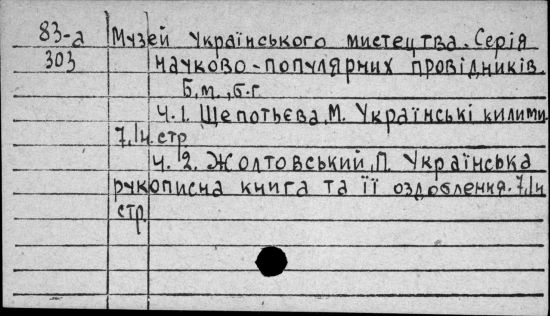 83-а Музей Українського мистецтва. Серія
303 науково-популярних провідників.
Б.м., б.г.
Ч.1. Щепотьєва, М. Українські килими.
7, Iн. стр
Ч. 2. Жолтовський, П. Українська
рукописна книга та її оздоблення. 7, Iн
стр.